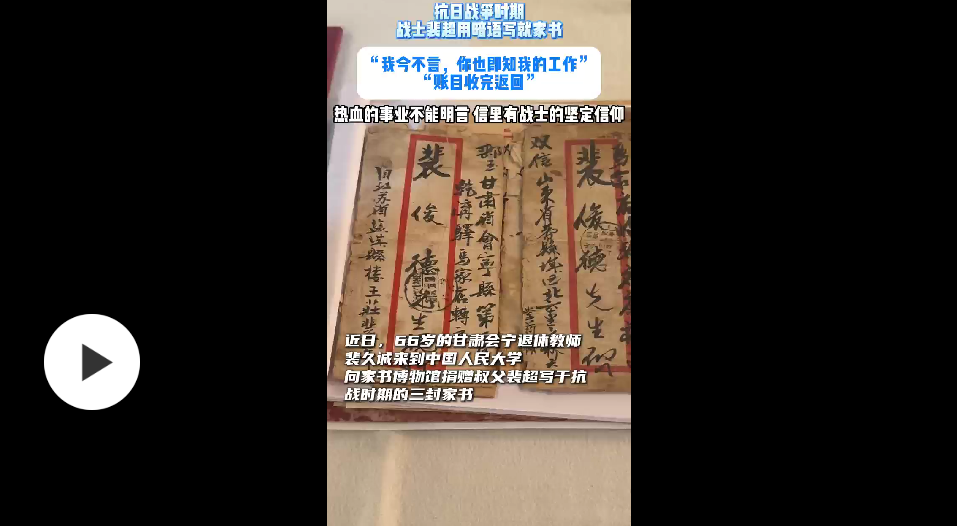 抗日战争时期
战士裴超用暗语写就家书
“我今不言，你也即知我的工作”
“账目收完返回”
热血的事业不能明言 信里有战士的坚定信仰
甘肃省會寧縣第
乾溝驛馬家店轉
裴俊德先生
裴俊德先生
近日，66岁的甘肃会宁退休教师
裴久诚来到中国人民大学
向家书博物馆捐赠叔父裴超写于抗
战时期的三封家书